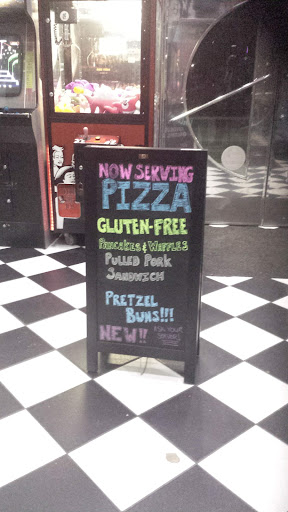 NOW SERVING
PIZZA
GLUTEN-FREE
PANCAKES & WAFFLES
PULLED PORK
SANDWICH
PRETZEL
BUNS!!!
NEW!!
ASK YOUR
SERVER